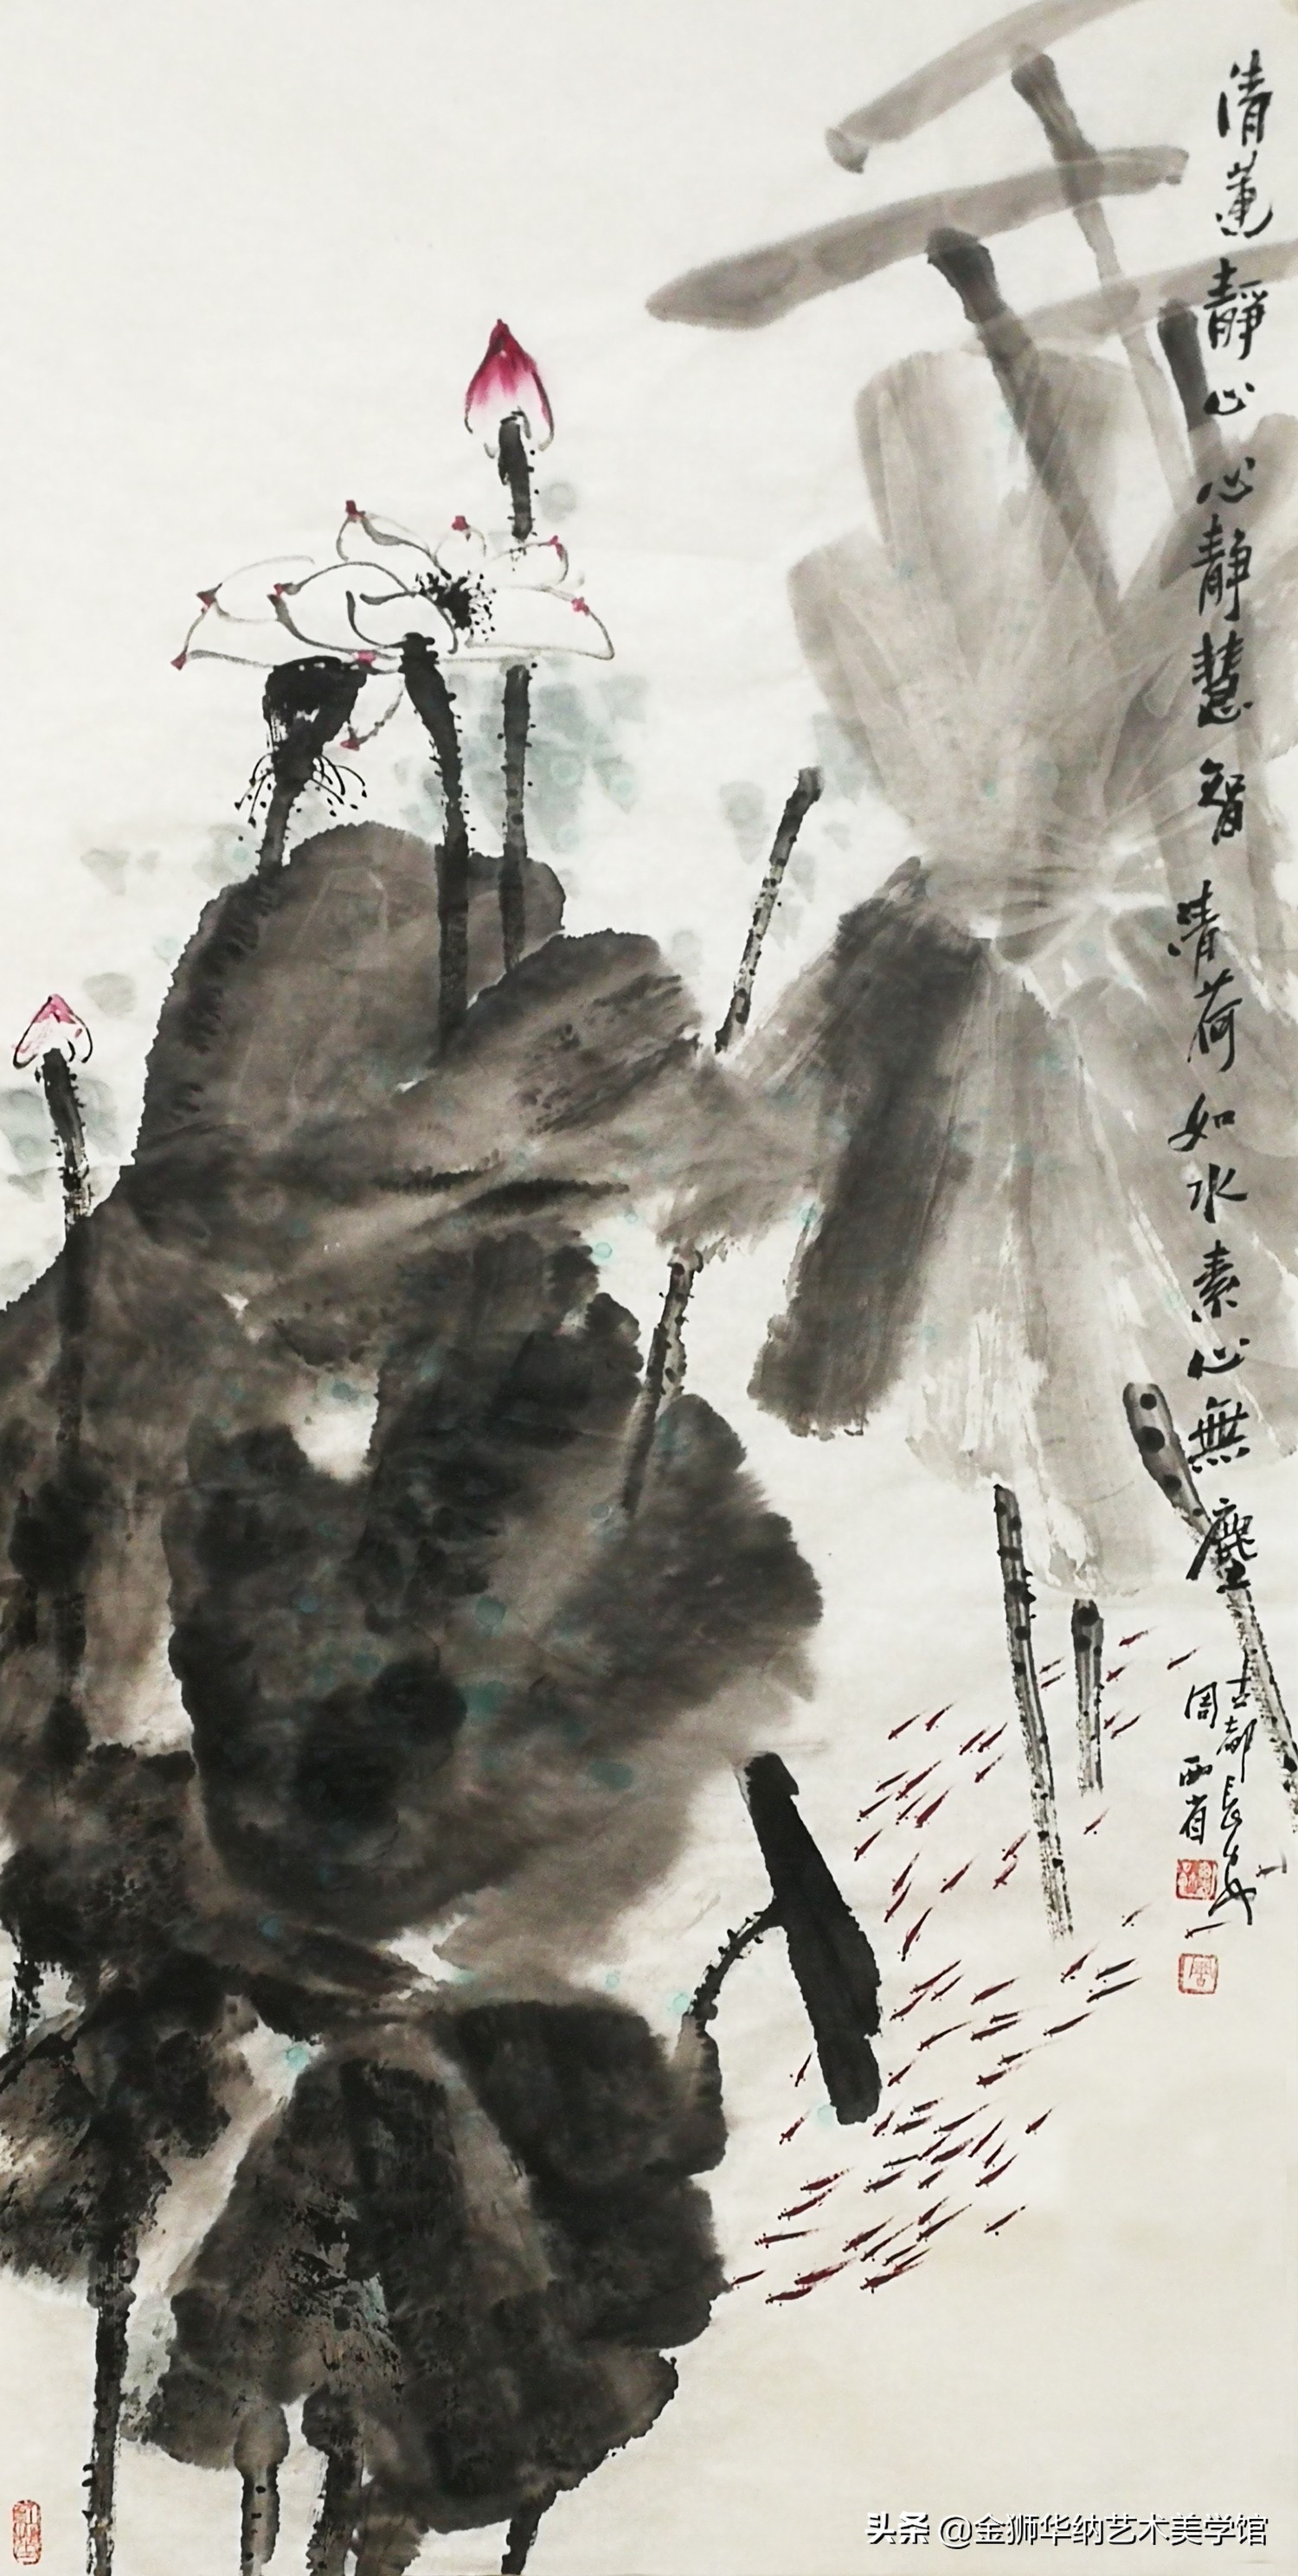 清蓮靜心心静慧智清荷如水素心無塵
古都長安
周西省
头条 @金狮华纳艺术美学馆